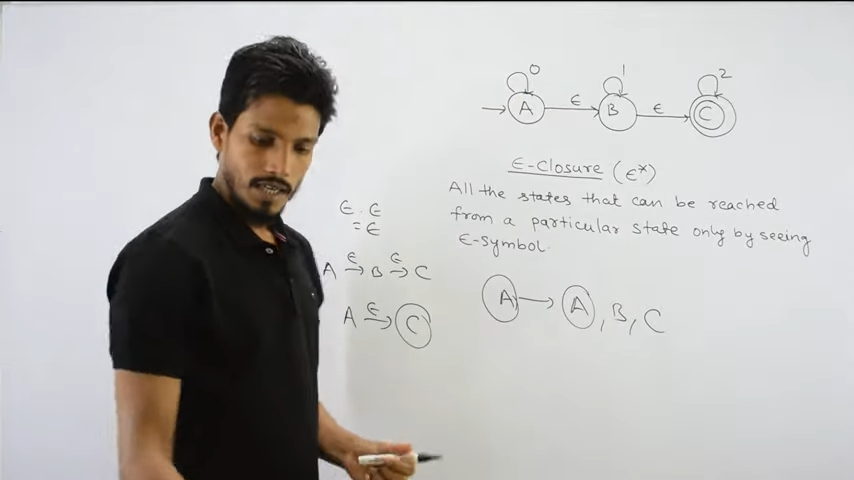 0 1 2
ϵ ϵ
A B C
ϵ-Closure (ϵ*)
All the states that can be reached
from a particular state only by seeing
ϵ-symbol.
ϵ . ϵ
= ϵ
A →ϵ B →ϵ C
A →ϵ C
A → A, B, C